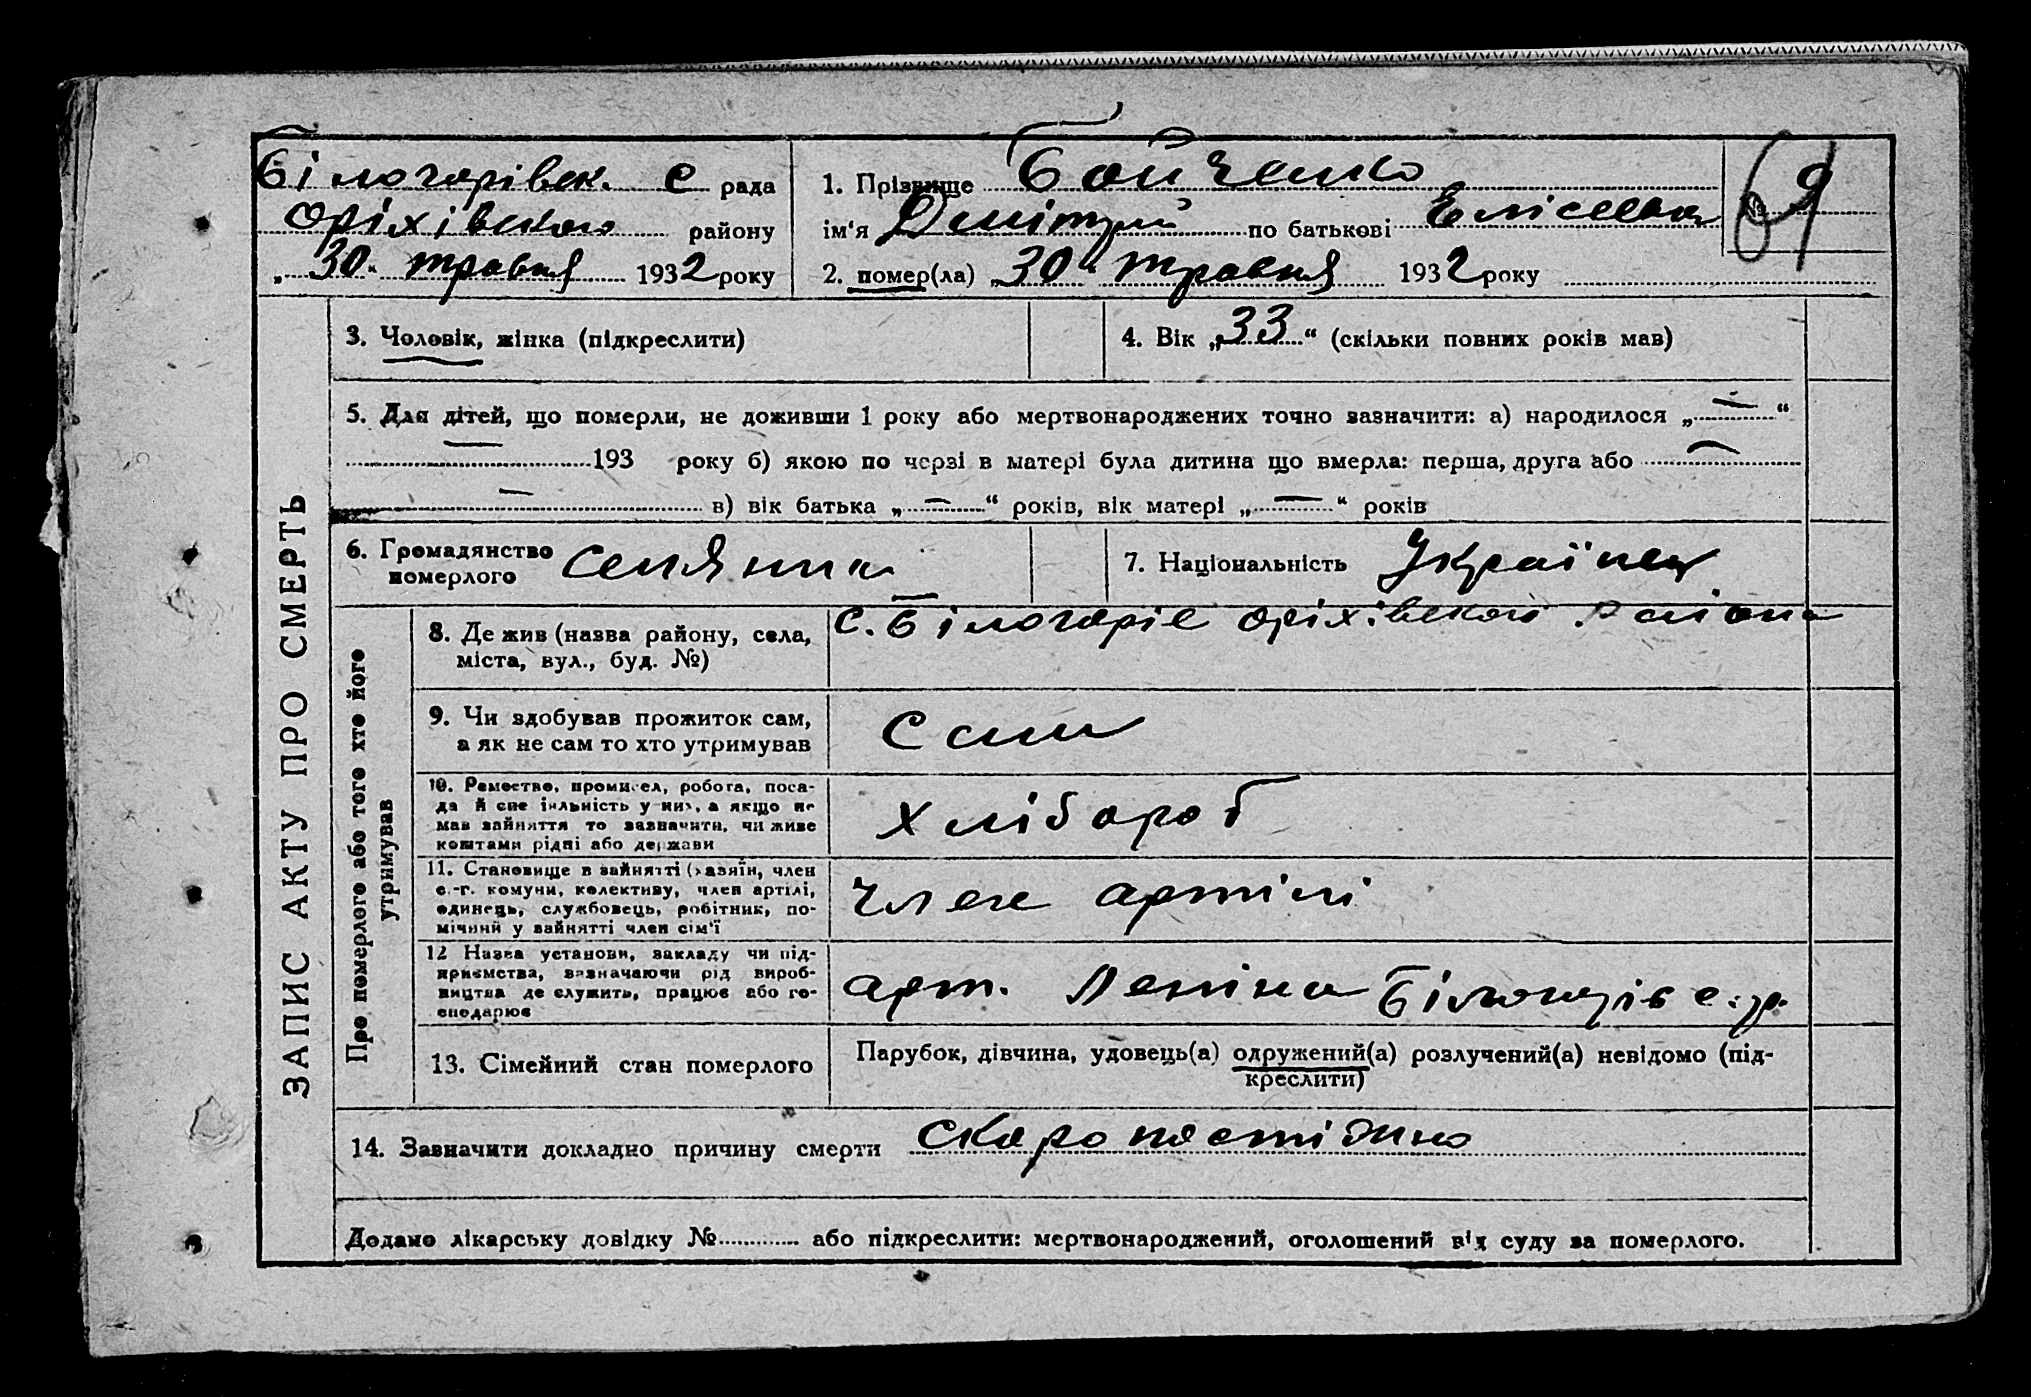 69
Білогорівск. с рада
Оріхівського району
„30“ травня 1932 року
1. Прізвище Бойченко
ім'я Дмітрий по батькові Елісеевич
2. помер(ла) „30“ травня 1932 року
ЗАПИС АКТУ ПРО СМЕРТЬ
3. Чоловік, жінка (підкреслити)
4. Вік „33“ (скільки повних років мав)
5. Для дітей, що померли, не доживши 1 року або мертвонароджених точно зазначити: а) народилося „—“
— 193 року б) якою по черзі в матері була дитина що вмерла: перша, друга або —
— в) вік батька „—“ років, вік матері „—“ років
6. Громадянство
померлого селянин
7. Національність Українец
Про померлого або того хто його
утримував
8. Де жив (назва району, села,
міста, вул., буд. №)
с. Білогоріє Оріхівского району
9. Чи здобував прожиток сам,
а як не сам то хто утримував
Сам
10. Ремество, промисел, робота, поса-
да й спеціяльність у них, а якщо не
мав зайняття то зазначити, чи живе
коштами рідні або держави
Хлібороб
11. Становище в зайнятті (хазяїн, член
с.-г. комуни, колективу, член артілі,
одинець, службовець, робітник, по-
мічний у зайнятті член сім'ї
Член артілі
12 Назва установи, закладу чи під-
приємства, зазначаючи рід вироб-
ництва де служить, працює або го-
сподарює
арт. Леніна Білогорів с.р.
13. Сімейний стан померлого
Парубок, дівчина, удовець(а) одружений(а) розлучений(а) невідомо (під-
креслити)
14. Зазначити докладно причину смерти скоропостіжно
Додано лікарську довідку № або підкреслити: мертвонароджений, оголошений від суду за померлого.